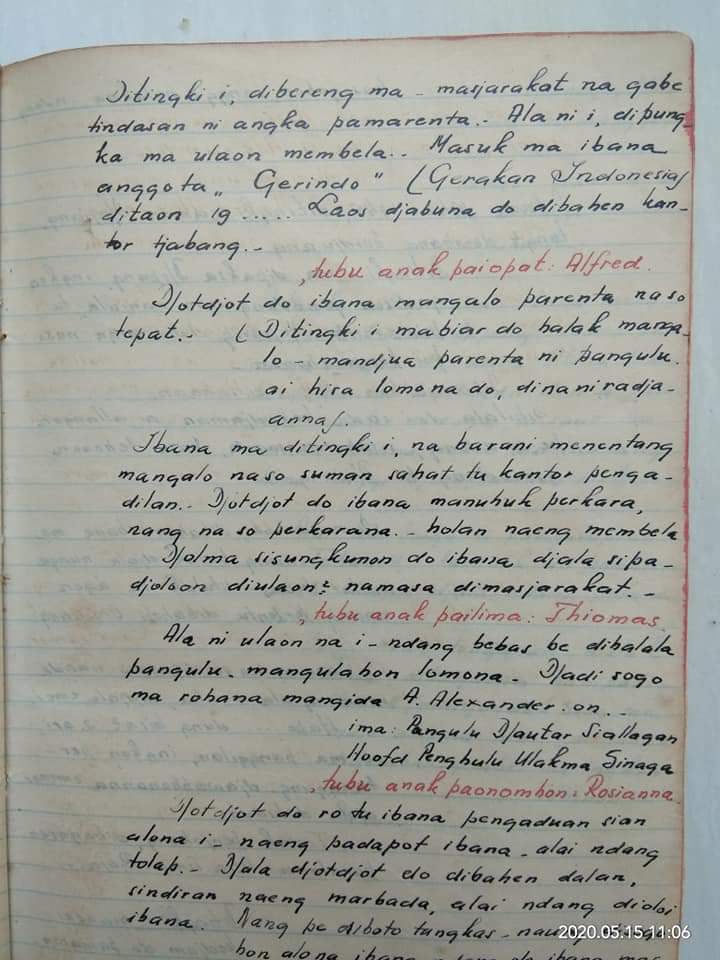 Ditingki i, dibereng ma - masjarakat na gabe
tindasan ni angka pamarenta.- Ala ni i, dipung-
ka ma ulaon membela.. Masuk ma ibana
anggota „ Gerindo " (Gerakan Indonesia)
ditaon 19 ..... Laos djabuna do dibahen kan-
tor tjabang.-
, tubu anak paiopat: Alfred.
Djotdjot do ibana mangalo parenta na so
tepat.- ( Ditingki i mabiar do halak manga-
lo - mandjua parenta ni pangulu.
ai hira lomona do, dinaniradja-
anna).
Ibana ma ditingki i, na barani menentang
mangalo na so suman sahat tu kantor penga-
dilan.- Djotdjot do ibana manuhuk perkara,
nang na so perkarana.- holan naeng membela
Djolma sisungkunon do ibana djala sipa-
djoloon diulaon2 namasa dimasjarakat.-
, tubu anak pailima: Thiomas.
Ala ni ulaon na i - ndang bebas be dihalala
pangulu - mangulahon lomona - Djadi sogo
ma rohana mangida A. Alexander on..
ima: Pangulu Djautar Siallagan
Hoofd Penghulu Ulakma Sinaga
, tubu anak paonomhon: Rosianna.
Djotdjot do ro tu ibana pengaduan sian
alona i - naeng padapot ibana - alai ndang
tolap.- Djala djotdjot do dibahen dalan,
sindiran naeng marbada, alai ndang dioloi
ibana. Nang pe diboto tangkas - naung
hon alona ibana do ibana
2020.05.15 11:06